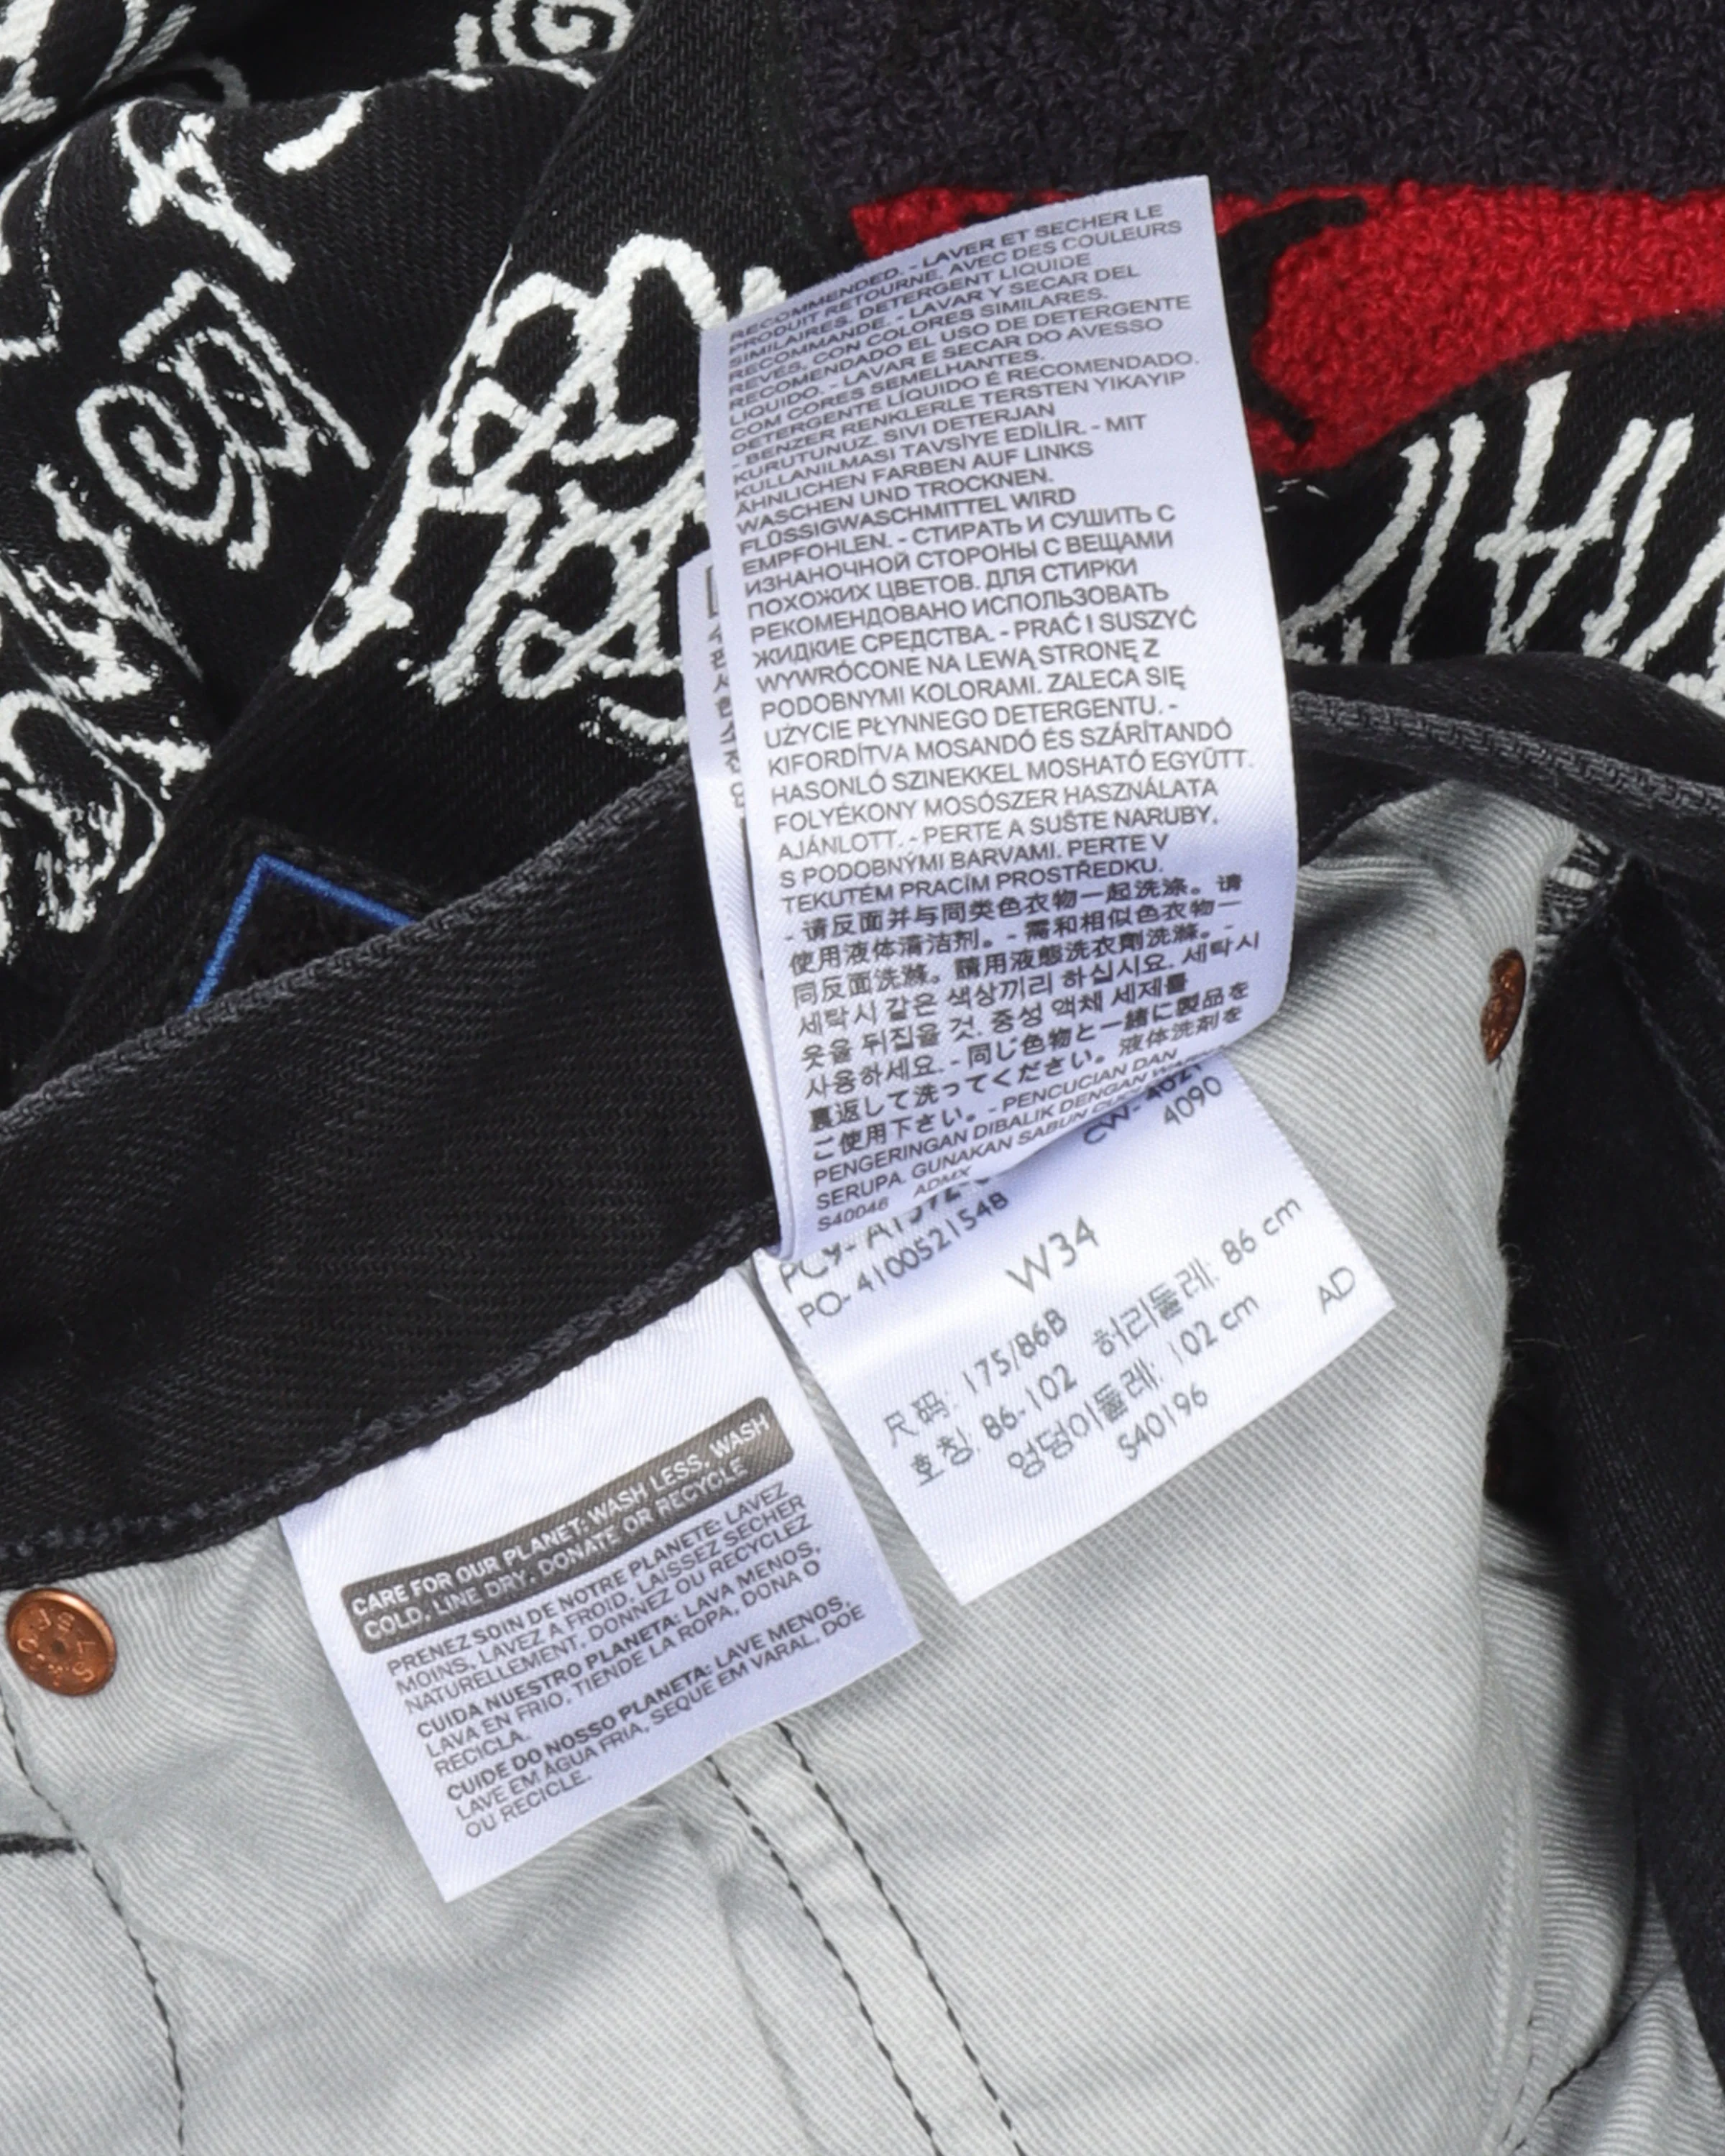 RECOMMENDED. - LAVER ET SECHER LE
PRODUIT RETOURNE, AVEC DES COULEURS
SIMILAIRES. DETERGENT LIQUIDE
RECOMMANDE. - LAVAR Y SECAR DEL
REVÉS, CON COLORES SIMILARES.
RECOMENDADO EL USO DE DETERGENTE
LIQUIDO. - LAVAR E SECAR DO AVESSO
COM CORES SEMELHANTES.
DETERGENTE LÍQUIDO É RECOMENDADO.
- BENZER RENKLERLE TERSTEN YIKAYIP
KURUTUNUZ. SIVI DETERJAN
KULLANILMASI TAVSİYE EDİLİR. - MIT
ÄHNLICHEN FARBEN AUF LINKS
WASCHEN UND TROCKNEN.
FLÜSSIGWASCHMITTEL WIRD
EMPFOHLEN. - СТИРАТЬ И СУШИТЬ С
ИЗНАНОЧНОЙ СТОРОНЫ С ВЕЩАМИ
ПОХОЖИХ ЦВЕТОВ. ДЛЯ СТИРКИ
РЕКОМЕНДОВАНО ИСПОЛЬЗОВАТЬ
ЖИДКИЕ СРЕДСТВА. - PRAĆ I SUSZYĆ
WYWRÓCONE NA LEWĄ STRONĘ Z
PODOBNYMI KOLORAMI. ZALECA SIĘ
UZYCIE PŁYNNEGO DETERGENTU. -
KIFORDÍTVA MOSANDÓ ÉS SZÁRÍTANDÓ
HASONLÓ SZINEKKEL MOSHATÓ EGYÜTT.
FOLYÉKONY MOSÓSZER HASZNÁLATA
AJÁNLOTT. - PERTE A SUŠTE NARUBY,
S PODOBNÝMI BARVAMI. PERTE V
TEKUTÉM PRACÍM PROSTŘEDKU.
- 请反面并与同类色衣物一起洗涤。请
使用液体清洁剂。- 需和相似色衣物一
同反面洗滌。請用液態洗衣劑洗滌。-
세탁시 같은 색상끼리 하십시요. 세탁시
옷을 뒤집을 것. 중성 액체 세제를
사용하세요. - 同じ色物と一緒に製品を
裏返して洗ってください。液体洗剤を
ご使用下さい。- PENCUCIAN DAN
PENGERINGAN DIBALIK DENGAN
SERUPA. GUNAKAN SABUN
S40046 ADMX
4090
PO- 4100521548
W34
尺码: 175/86B
호칭: 86-102 허리둘레: 86 cm
엉덩이둘레: 102 cm
S40196 AD
CARE FOR OUR PLANET: WASH LESS, WASH
COLD, LINE DRY, DONATE OR RECYCLE
PRENEZ SOIN DE NOTRE PLANETE: LAVEZ
MOINS, LAVEZ A FROID, LAISSEZ SECHER
NATURELLEMENT, DONNEZ OU RECYCLEZ
CUIDA NUESTRO PLANETA: LAVA MENOS,
LAVA EN FRIO, TIENDE LA ROPA, DONA O
RECICLA.
CUIDE DO NOSSO PLANETA: LAVE MENOS,
LAVE EM ÁGUA FRIA, SEQUE EM VARAL, DOE
OU RECICLE.